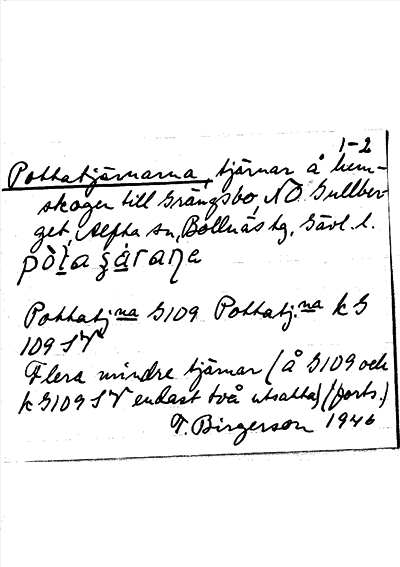 1-2
Pottatjärnarna, tjärnar å hem-
skogen till Grängsbo, NO Gullber-
get, Alfta sn, Bollnäs tg, Gävl. l.
pòt̲a ʂá̲raɳa
Pottatj.na G109 Pottatj.na k G
109 SV
Flera mindre tjärnar (å G109 och
k G109 SV endast två utsatta) (forts.)
T. Birgerson 1946